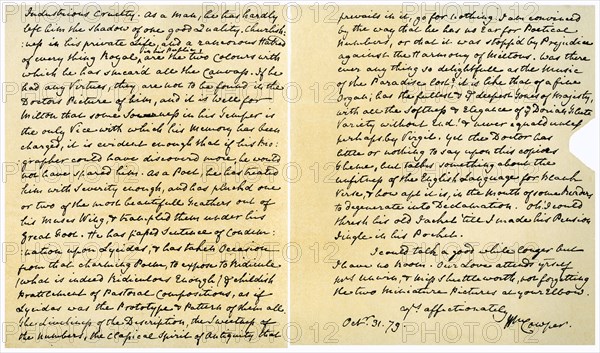 Industrious Cruelty. As a Man, he has hardly
left him the Shadow of one good Quality, Churlish:
:ness in his private Life, and a rancorous Hatred
in his Public,
of every thing Royal, are the two Colours with
which he has smear'd all the Canvass. If he
had any Virtues, they are not to be found in the
Doctors Picture of him, and it is well for
Milton that some Sourness in his Temper is
the only Vice with which his Memory has been
charged, it is evident enough that if his Bio:
:grapher could have discovered more, he would
not have spared him. As a Poet, he has treated
him with Severity enough, and has pluck'd one
or two of the most beautifull Feathers out of
his Muses Wing, & trampled them under his
Great Foot. He has passed Sentence of Condem:
:nation upon Lycidas, & has taken Occasion
from that charming Poem, to expose to Ridicule
(what is indeed Ridiculous Enough) the childish
Prattlement of Pastoral Compositions, as if
Lycidas was the Prototype & Pattern of them all.
the Liveliness of the Description, the Sweetness of
the Numbers, the Classical Spirit of Antiquity that
prevails in it, go for nothing. I am convinced
by the way that he has no Ear for Poetical
Numbers, or that it was stopp'd by Prejudice
against the Harmony of Miltons. Was there
ever any thing so delightfull as the Music
of the Paradise Lost? it is like that of a fine
Organ; has the fullest & the deepest Tones of Majesty,
with all the Softness & Elegance of the Dorian Flute.
Variety without End! & never equaled unless
perhaps by Virgil. Yet the Doctor has
little or nothing to say upon this copious
Theme, but talks something about the
unfitness of the English Language for Blank
Verse, & how apt it is, in the Mouth of some Readers
to degenerate into Declamation. Oh! I could
thresh his old Jacket 'till I made his Pension
Jingle in his Pocket.
I could talk a good while longer but
I have no Room. Our Love attends yrself
Mrs Unwin, & Miss Shuttleworth, not forgetting
the two Miniature Pictures at your Elbow.
Yrs affectionately
Octr. 31. 79. Wm Cowper.